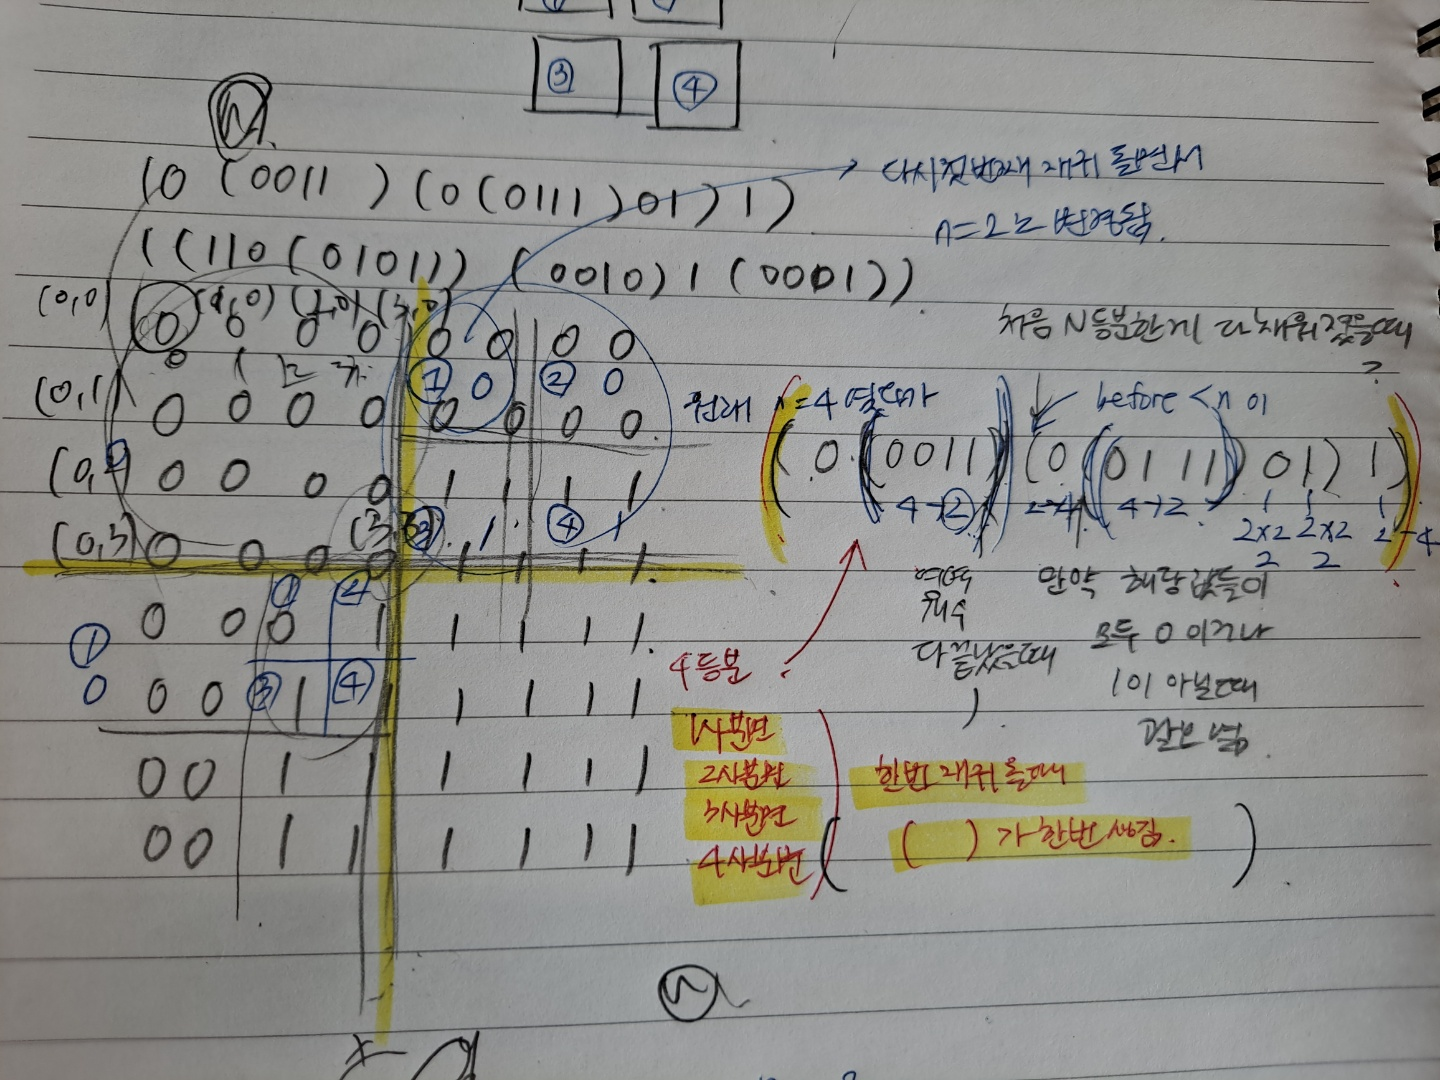 ③ ④
(0 (0011) (0(0111)01)1)
((110(0101)) (0010)1(0001))
다시 첫번째 재귀 돌면서
n=2로 변경됨.
(0,0) (1,0) (2,0) (3,0)
0 0 0 0 0 0 0 0
① 0 ② 0
(0,1) 0 0 0 0 0 0 0 0
(0,2) 0 0 0 0 1 1 1 1
③ 1 ④ 1
(0,3) 0 0 0 0 1 1 1 1
① ②
0 0 0 1 1 1 1 1
① 0
③ ④
0 0 1 1 1 1 1 1
0 0 1 1 1 1 1 1
0 0 1 1 1 1 1 1
처음 N등분한게 다 채워졌을때
?
원래 n=4 였다가
before < n 이
(0(0011)(0(0111)01)1)
4→② 2→4 4→2
2x2 2x2 2→4
2 2
다 끝났을때
)
만약 해당 값들이
모두 0 이거나
1이 아닐때
괄호 넣
4등분
1사분면
2사분면
3사분면
4사분면
한번 재귀 돌때
( ) 가 한번 생김.